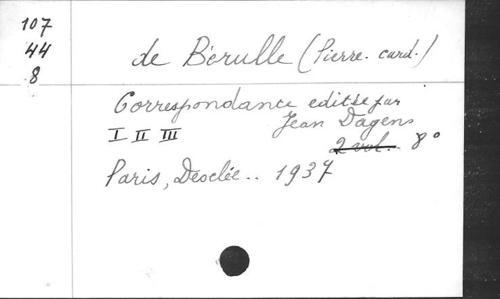 107
44
8
de Bérulle (Pierre. card.)
Correspondance editée par
Jean Dagens
I II III
2 vol. 8°
Paris, Desclée.. 1937